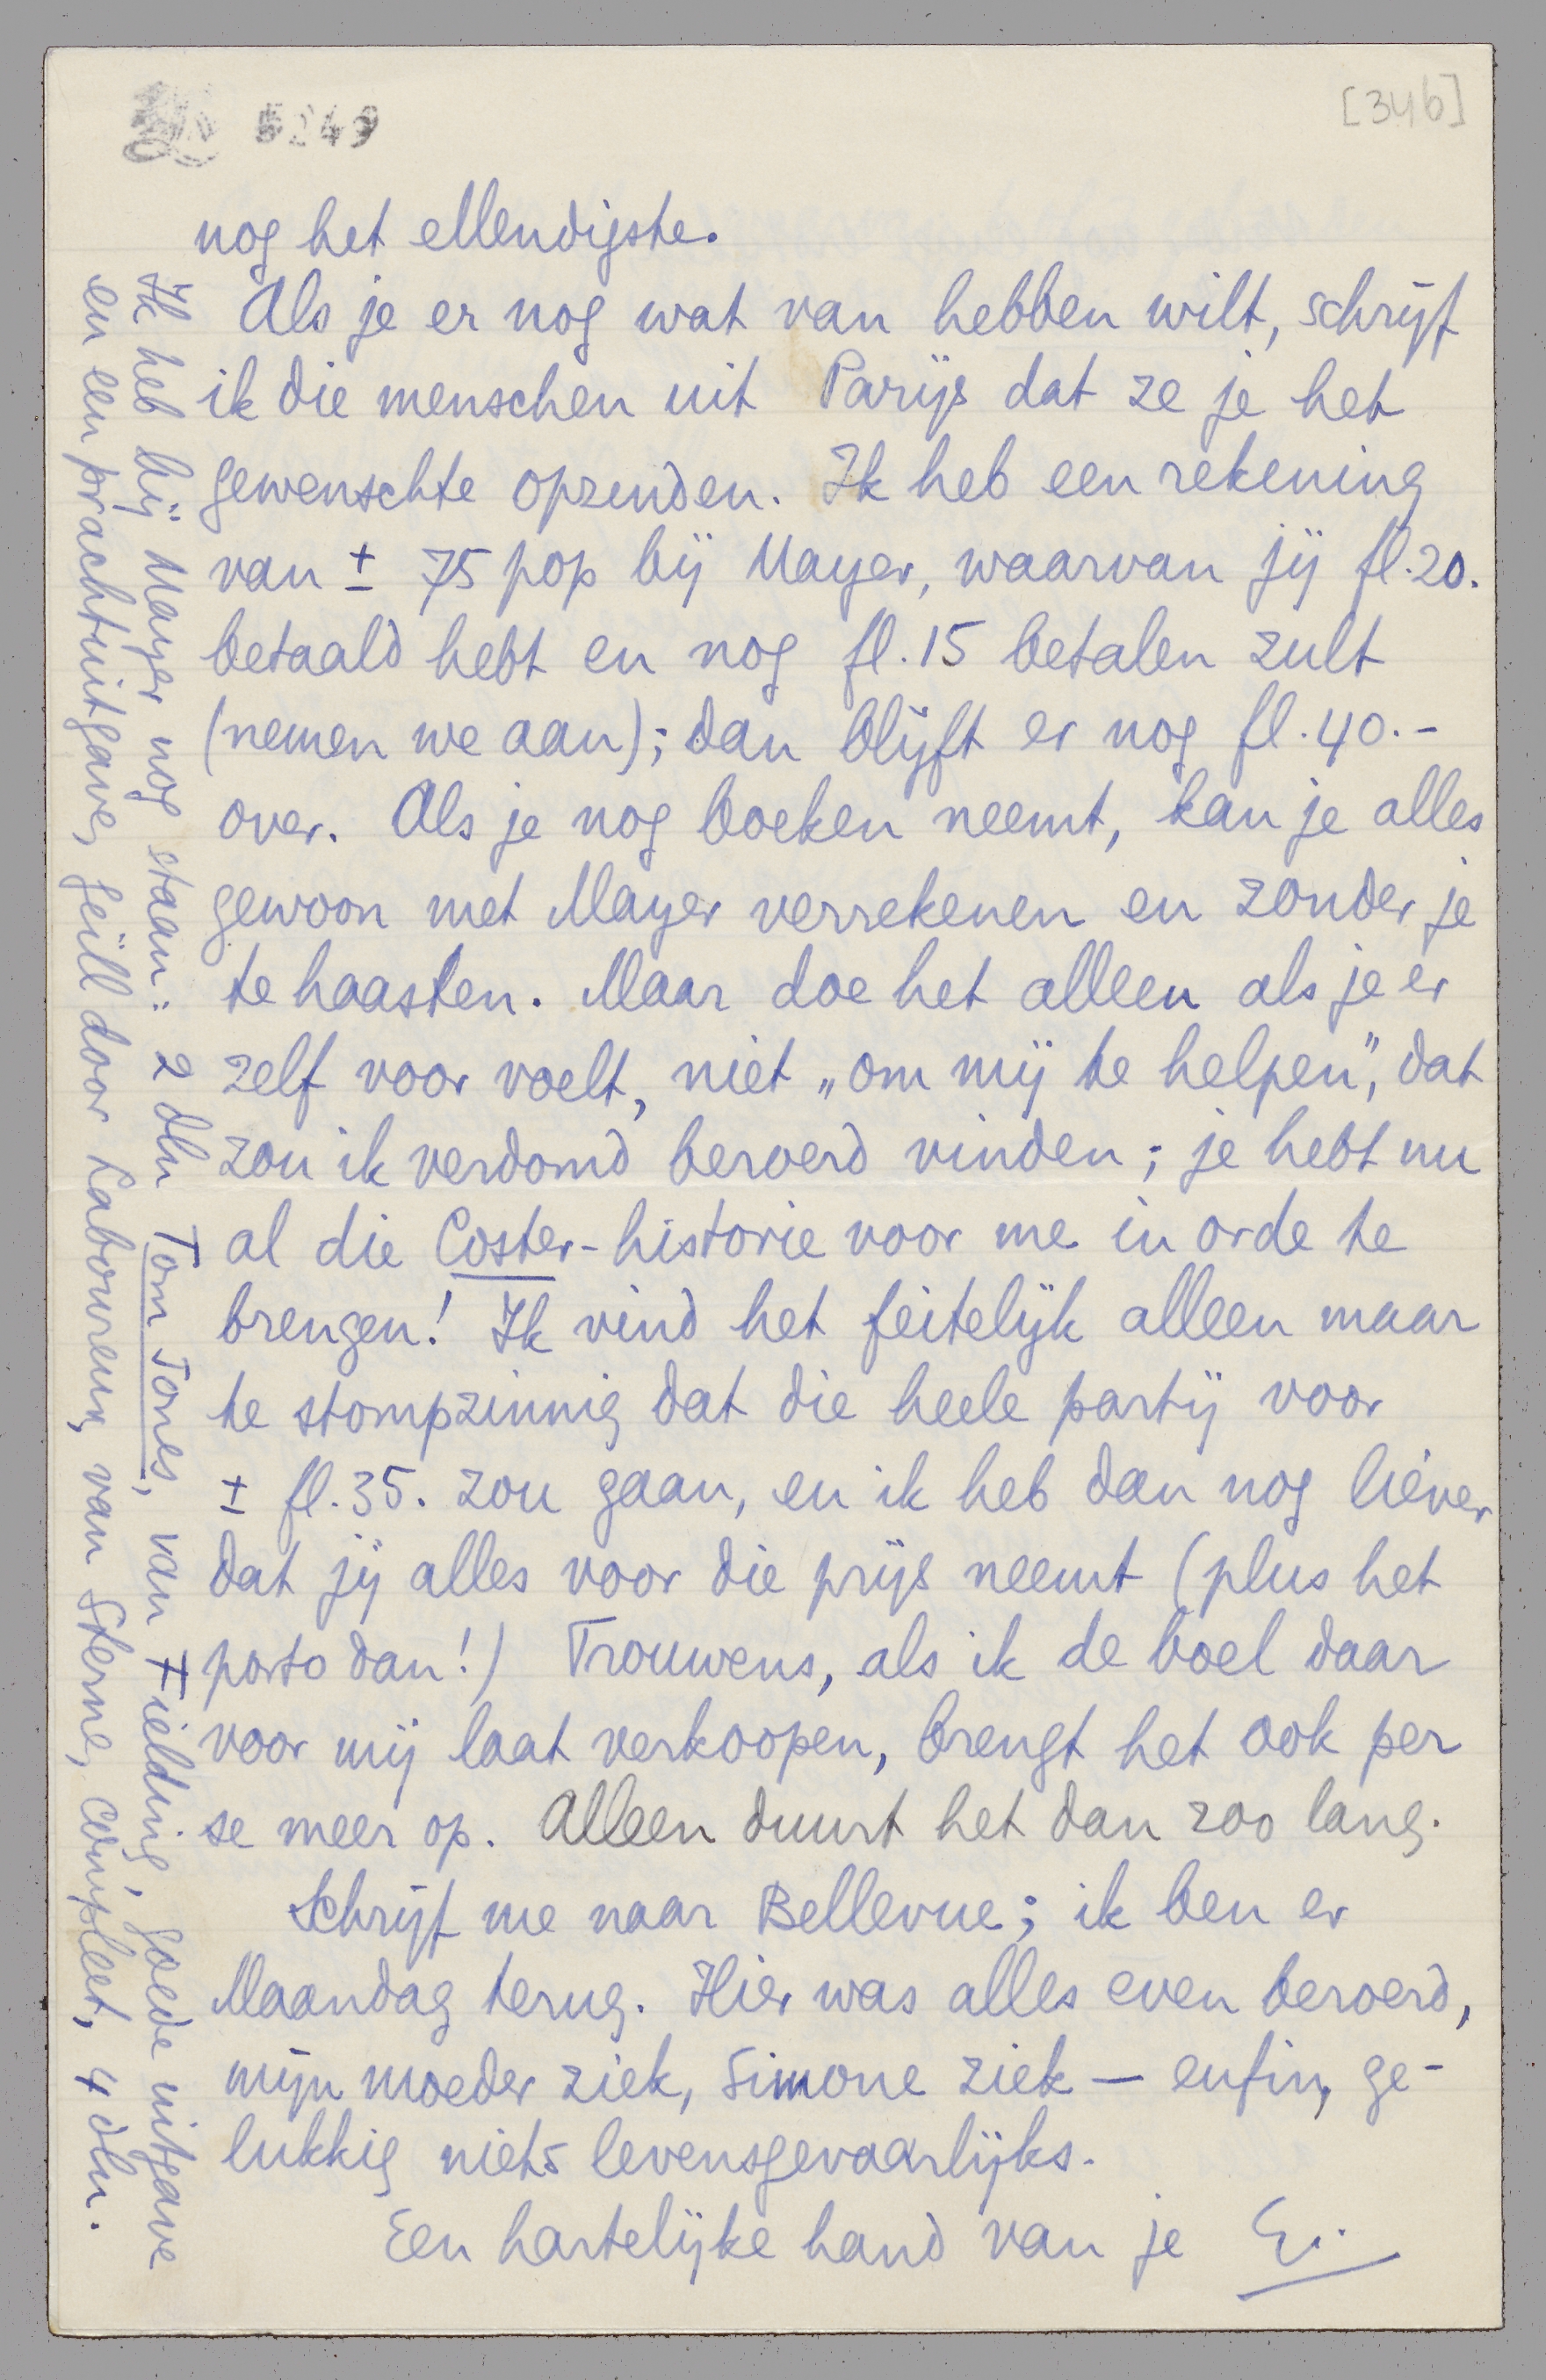 5249
[346]
nog het ellendigste.
Als je er nog wat van hebben wilt, schrijf
ik die menschen uit Parijs dat ze je het
gewenschte opzenden. Ik heb een rekening
van ± 75 pop bij Mayer, waarvan jij fl. 20.
betaald hebt en nog fl. 15 betalen zult
(nemen we aan); dan blijft er nog fl. 40.-
over. Als je nog boeken neemt, kan je alles
gewoon met Mayer verrekenen en zonder je
te haasten. Maar doe het alleen als je er
zelf voor voelt, niet „om mij te helpen”, dat
zou ik verdomd beroerd vinden; je hebt nu
al die Coster-historie voor me in orde te
brengen! Ik vind het feitelijk alleen maar
te stompzinnig dat die heele partij voor
± fl. 35. zou gaan, en ik heb dan nog liéver
dat jij alles voor die prijs neemt (plus het
porto dan!) Trouwens, als ik de boel daar
voor mij laat verkoopen, brengt het ook per
se meer op. Alleen duurt het dan zoo lang.
Schrijf me naar Bellevue; ik ben er
Maandag terug. Hier was alles even beroerd,
mijn moeder ziek, Simone ziek — enfin, ge-
lukkig niets levensgevaarlijks.
Een hartelijke hand van je E.
Ik heb bij Mayer nog staan: 2 dln Tom Jones, van Fielding, goede uitgave
en een prachtuitgave, geïll door Laboureur, van Sterne, compleet, 4 dln.